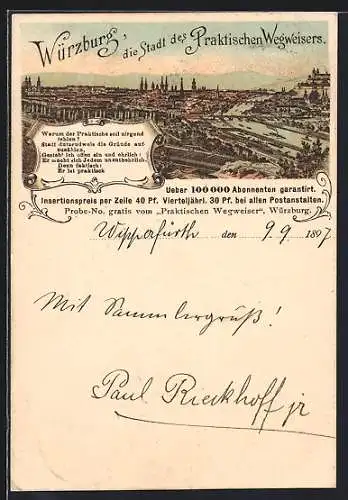 Würzburg, die Stadt des Praktischen Wegweisers.
Warum der Praktische soll nirgend
fehlen?
Statt dutzendweis die Gründe auf-
zuzählen,
Gesteh' ich offen ein und ehrlich:
Er macht sich Jedem unentbehrlich
Denn faktisch:
Er ist praktisch
Ueber 100 000 Abonnenten garantirt.
Insertionspreis per Zeile 40 Pf. Vierteljährl. 30 Pf. bei allen Postanstalten.
Probe-No. gratis vom „Praktischen Wegweiser", Würzburg.
Wipperfürth den 9 9. 1897
Mit Sammlergrüß!
Paul Rieckhoff jr